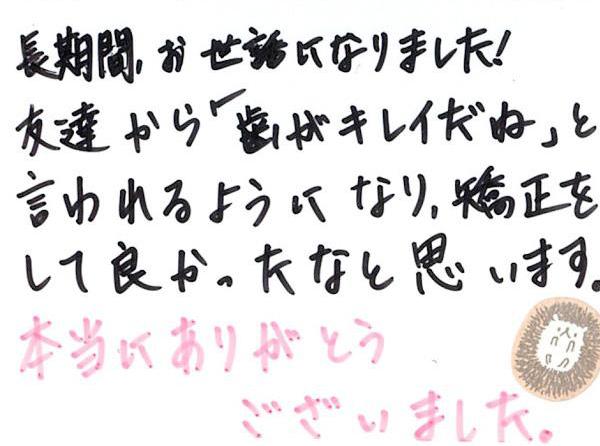 長期間、お世話になりました!
友達から「歯がキレイだね」と
言われるようになり、矯正を
して良かったなと思います。
本当にありがとう
ございました。